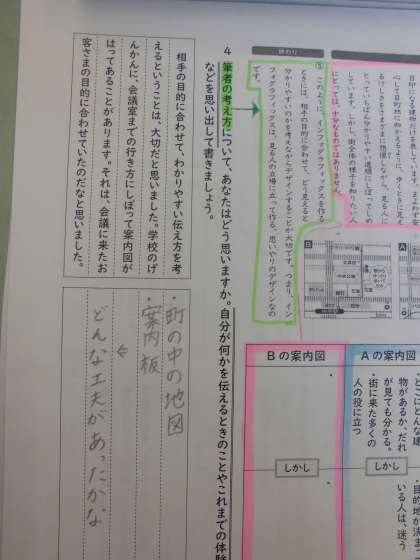 目印になる建物だけを表しています。まよわず安
心して目的地に向かえるように、歩くときに見え
るけしきをさまざまに想像しながら、見る人に
とっていちばん分かりやすい道順にしぼってしめ
しています。しかし、街全体の様子を知りたい人
にとっては、十分なものではありません。
終わり
⑤ このように、インフォグラフィックスを作る
ときには、相手の目的に合わせて、どう見えると
分かりやすいのかを考えながらデザインすることが大切です。つまり、イン
フォグラフィックスは、見る人の立場に立って作る、思いやりのデザインなの
です。
B
A
Aの案内図
・どこにどんな建
物があるか、だれ
が見ても分かる。
・街に来た多くの
人の役に立つ
しかし
・目的地が決ま
いる人は、迷う
Bの案内図
しかし
4 筆者の考え方について、あなたはどう思いますか。自分が何かを伝えるときのことやこれまでの体験
などを思い出して書きましょう。
相手の目的に合わせて、わかりやすい伝え方を考
えるということは、大切だと思いました。学校のげ
んかんに、会議室までの行き方にしぼって案内図が
はってあることがあります。それは、会議に来たお
客さまの目的に合わせていたのだなと思いました。
・町の中の地図
・案内板
どんな工夫があったかな